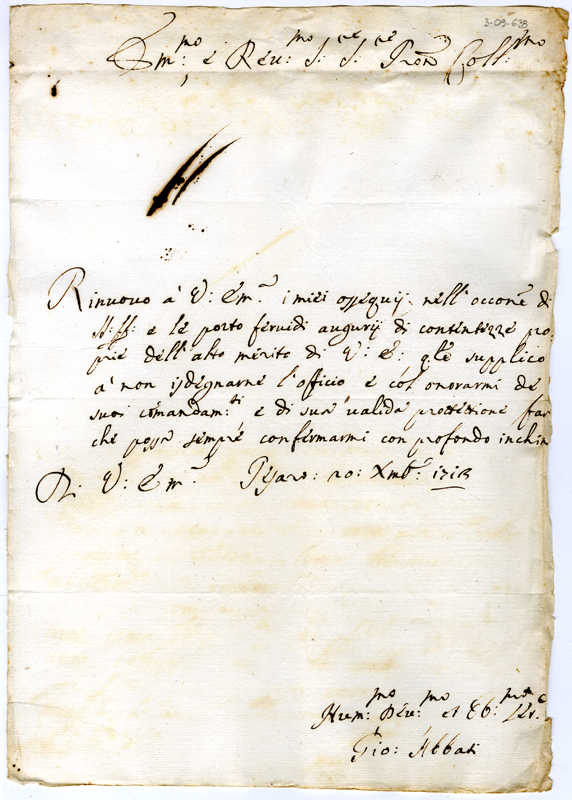 3-09-638
Em:mo e Reu:mo S:re S:re Pron Coll:mo
Rinuouo à V: Em.a i miei ossequij nell' occone di
SS: ff: e le porto feruidi augurij di contentezze pro-
prie dell' alto mérito di V: E: q̃le supplico
à non isdegnarne l' officio e còl onorarmi dè
suoi comandam:ti e di sua ualida prottétione far
che possa sempre confermarmi con profondo inchin
Di V: Em.a Pesaro: 20: Xmbre
Hum:mo Deu:mo et Ob:mo
Gio: Abbati